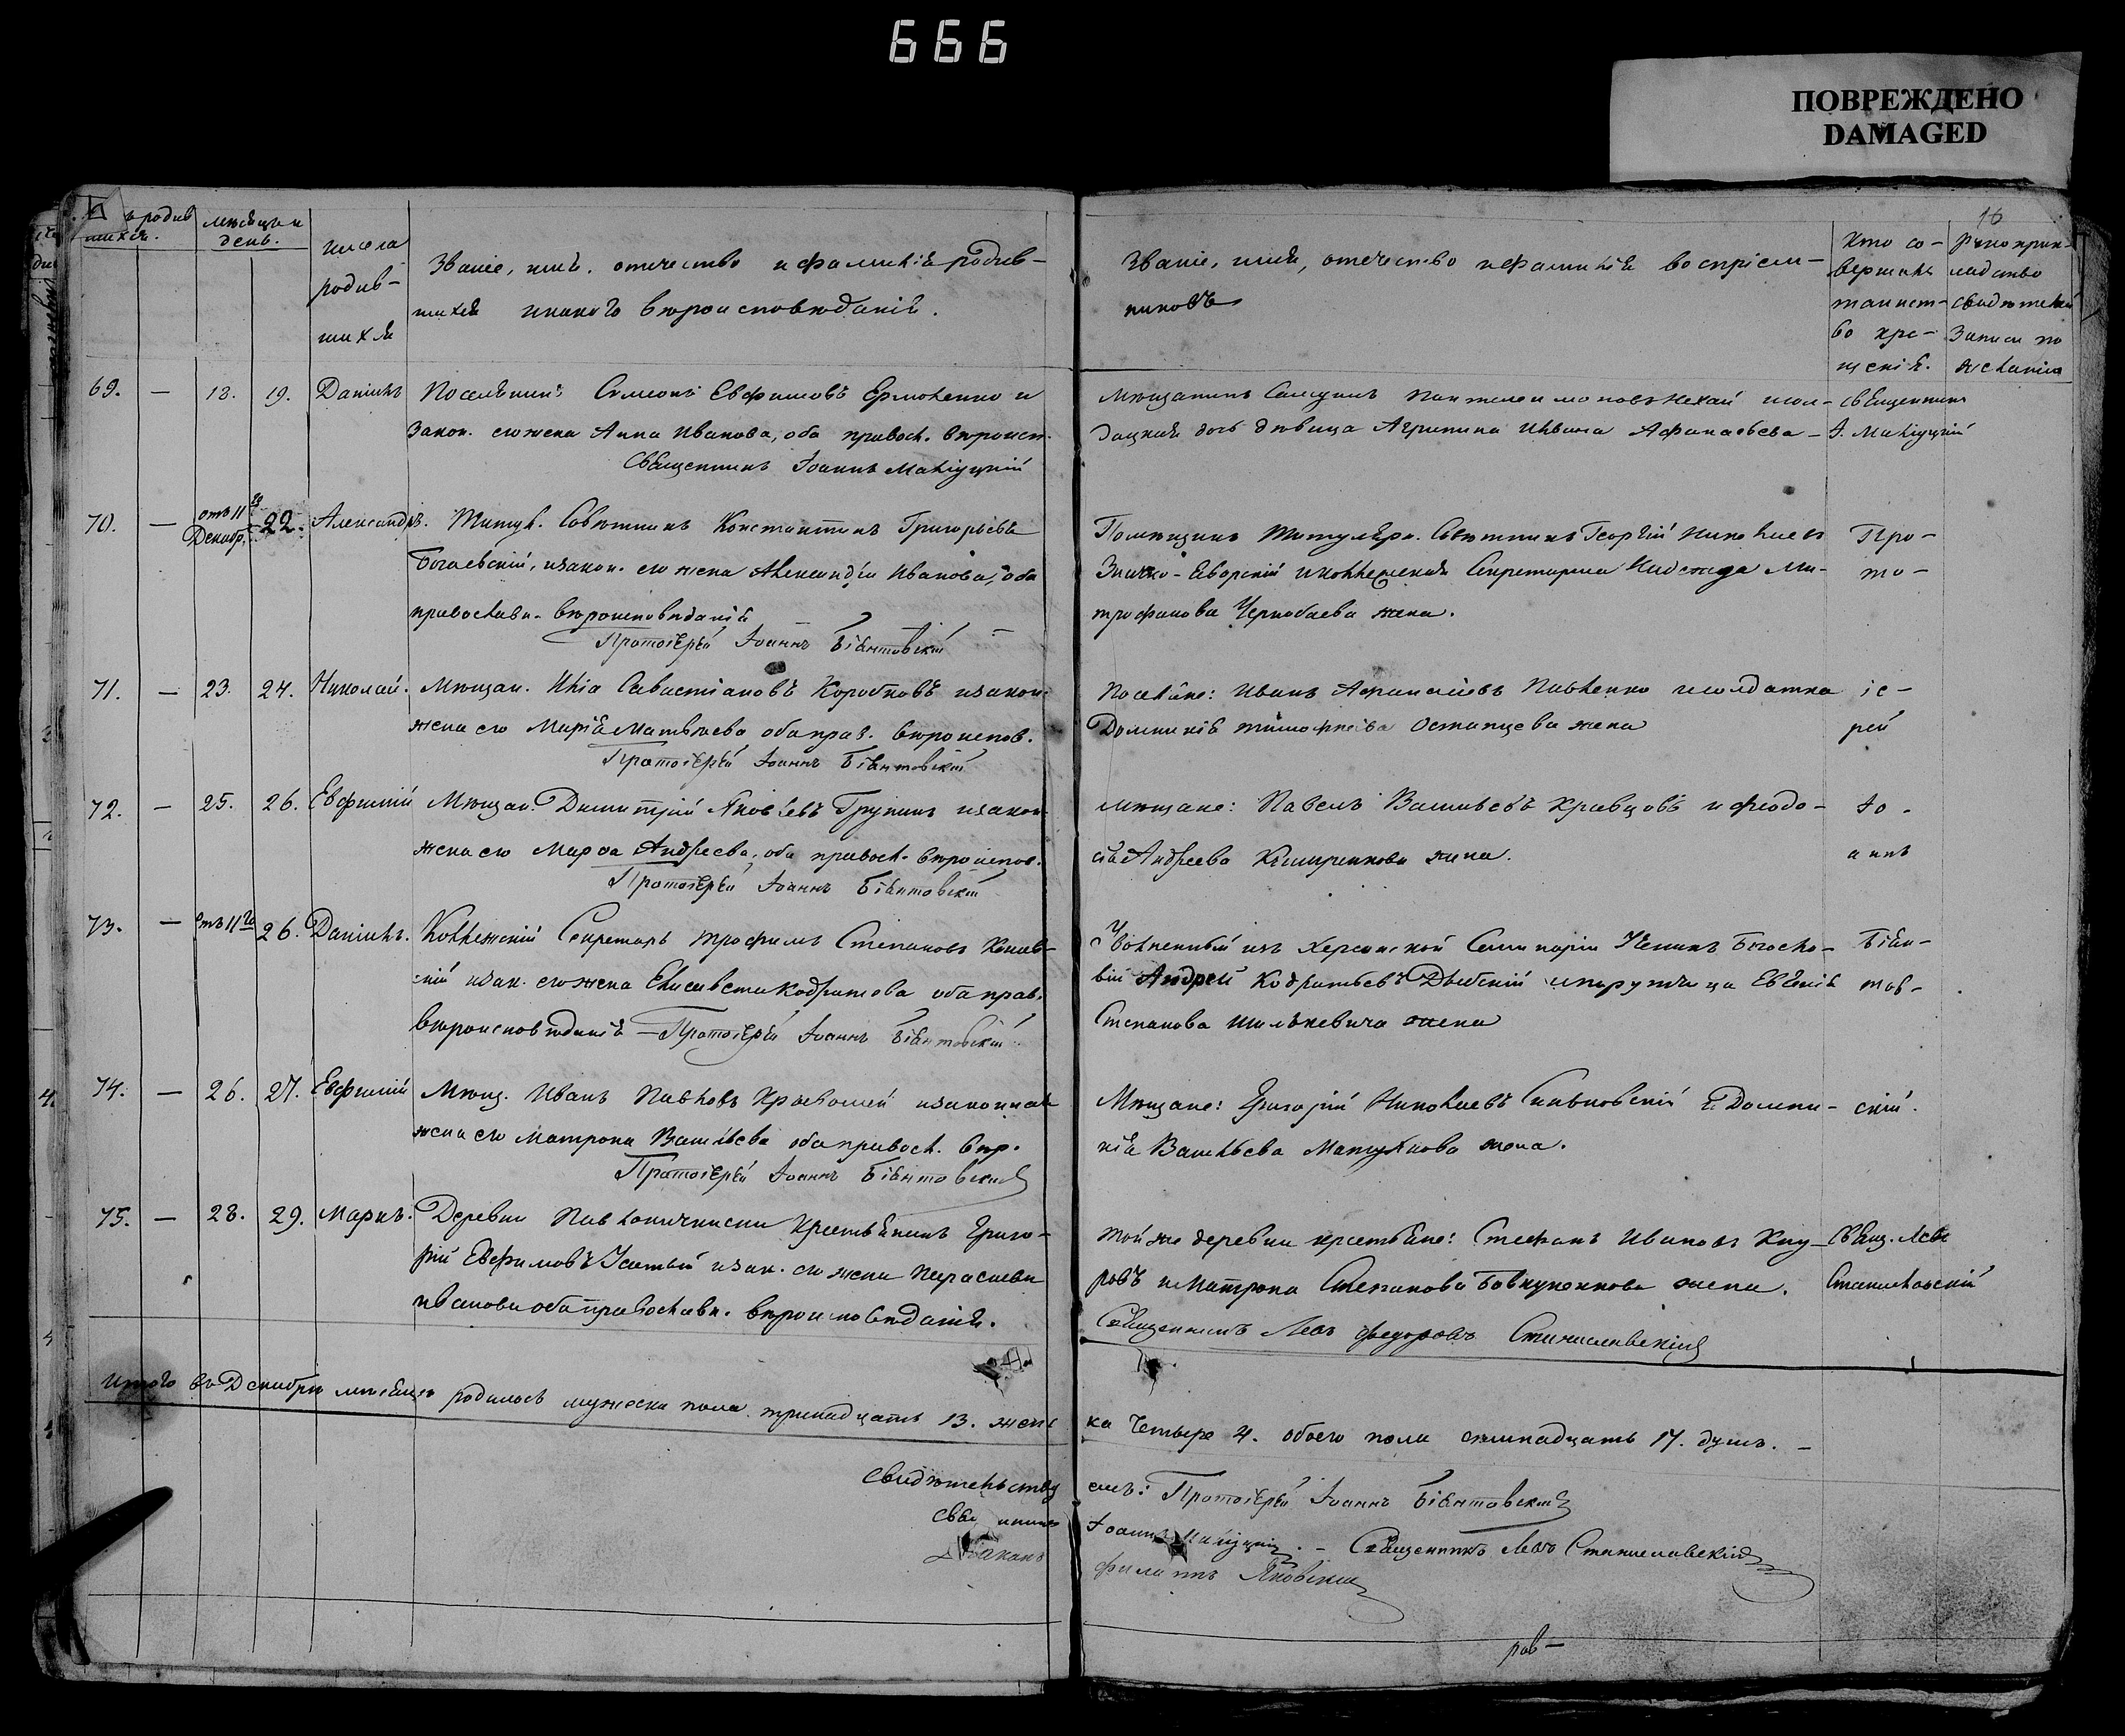 666
ПОВРЕЖДЕНО
DAMAGED
16
родив
шихся.
мѣсяцъ и
день.
имена
родив-
шихся
Званіе, имя, отчество и фамилія родив-
шихъ и какого вѣроисповѣданія.
Званіе, имя, отечество и фамилія воспріем-
никовъ
Кто со-
вершалъ
таинст-
во кре-
щенія.
Рукоприк-
ладство
свидѣтелей
записи по
желанію
69. — 18. 19. Даніилъ
Поселянинъ Симеонъ Евфимовъ Ермоленко и
закон. его жена Анна Иванова, оба правосл. вѣроисп.
Священникъ Іоаннъ
Мѣщанинъ Пантелеимоновъ сол-
дацкая дочь дѣвица Агрипина Афанасьева
Священникъ
І.
70. — отъ 11го Декабр. 22. Александръ.
Титул. Совѣтникъ Константинъ Григорьевъ
Богаевскій, и закон. его жена Александра Иванова, оба
православн. вѣроисповѣданія
Протоіерей Іоаннъ Біянтовскій
Помѣщикъ Титуляр. Совѣтникъ Георгій Николаевъ
Значко-Яворскій и коллежскаго Секретаря Надежда Ми-
трофанова Чернобаева жена.
Про-
то-
71. — 23. 24. Николай.
Мѣщан. Илія Савастіановъ Коробковъ и закон.
жена его Марія Матвѣева оба прав. вѣроиспов.
Протоіерей Іоаннъ Біянтовскій
Поселяне: Иванъ Афанасіевъ Павленко и солдатка
Домникія Тимофѣева Остапцева жена
іе-
рей
72. — 25. 26. Евфимій
Мѣщан. Димитрій Яковлевъ Групинъ и закон.
жена его Марѳа Андреева, оба правосл. вѣроиспов.
Протоіерей Іоаннъ Біянтовскій
Мѣщане: Павелъ Васильевъ Кравцовъ и Феодо-
сія Андреева жена.
Іо-
аннъ
73. — отъ 11го 26. Даніилъ.
Коллежскій Секретарь Трофимъ Степановъ
скій и зак. его жена Елисавета Кодратова оба прав.
вѣроисповѣданія — Протоіерей Іоаннъ Біянтовскій
Уволенный изъ Херсонской Семинаріи Ученикъ Богосло-
вія Андрей Кодратьевъ и поручица Евгенія
Степанова жена
Біян-
тов-
74. — 26. 27. Евфимій
Мѣщ. Иванъ Павловъ и законная
жена его Матрона Васильева оба правосл. вѣр.
Протоіерей Іоаннъ Біянтовскій
Мѣщане: Григорій Николаевъ и Домни-
кія Васильева жена.
скій.
75. — 28. 29. Маркъ.
Деревни крестьянинъ Григо-
рій Евфимовъ Усатый и зак. его жена Параскева
Иванова оба православн. вѣроисповѣданія.
Той же деревни крестьяне: Стефанъ Ивановъ Кну-
ровъ и Матрона Степанова жена.
Священникъ Левъ Федоровъ Станиславскій
Свящ. Левъ
Станиславскій
Итого въ Декабрѣ мѣсяцѣ родилось мужеска пола тринадцать 13. женс
ка Четыре 4. обоего пола семнадцать 17. душъ. —
Свидѣтельству
емъ: Протоіерей Іоаннъ Біянтовскій
Іоаннъ — Священникъ Левъ Станиславскій
Діаконъ
Яновскій
рав—